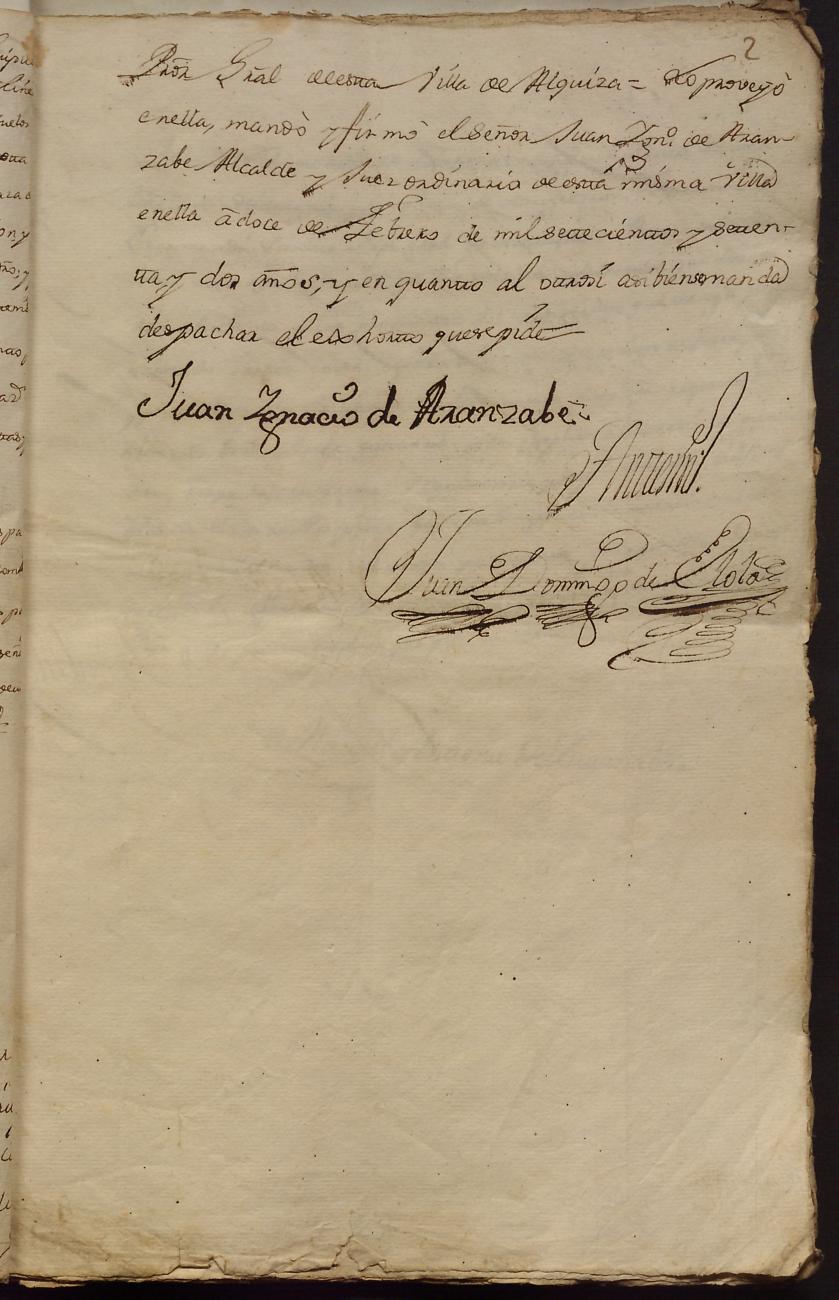 2
Pror Gral de esta Villa de Alquiza = lo proveyò
enella, mandò y firmò el Señor Juan Ygno. de Aran-
zabe Alcalde y Juez ordinario de esta misma Villa
enella à doce de Febrero de mil setecientos y seten-
ta, y dos años, y en quanto al otrosi asibien manda
despachar el exshorto que se pide
Juan Ygnacio de Aranzabe
Antemi.
Juan Domingo de Elola